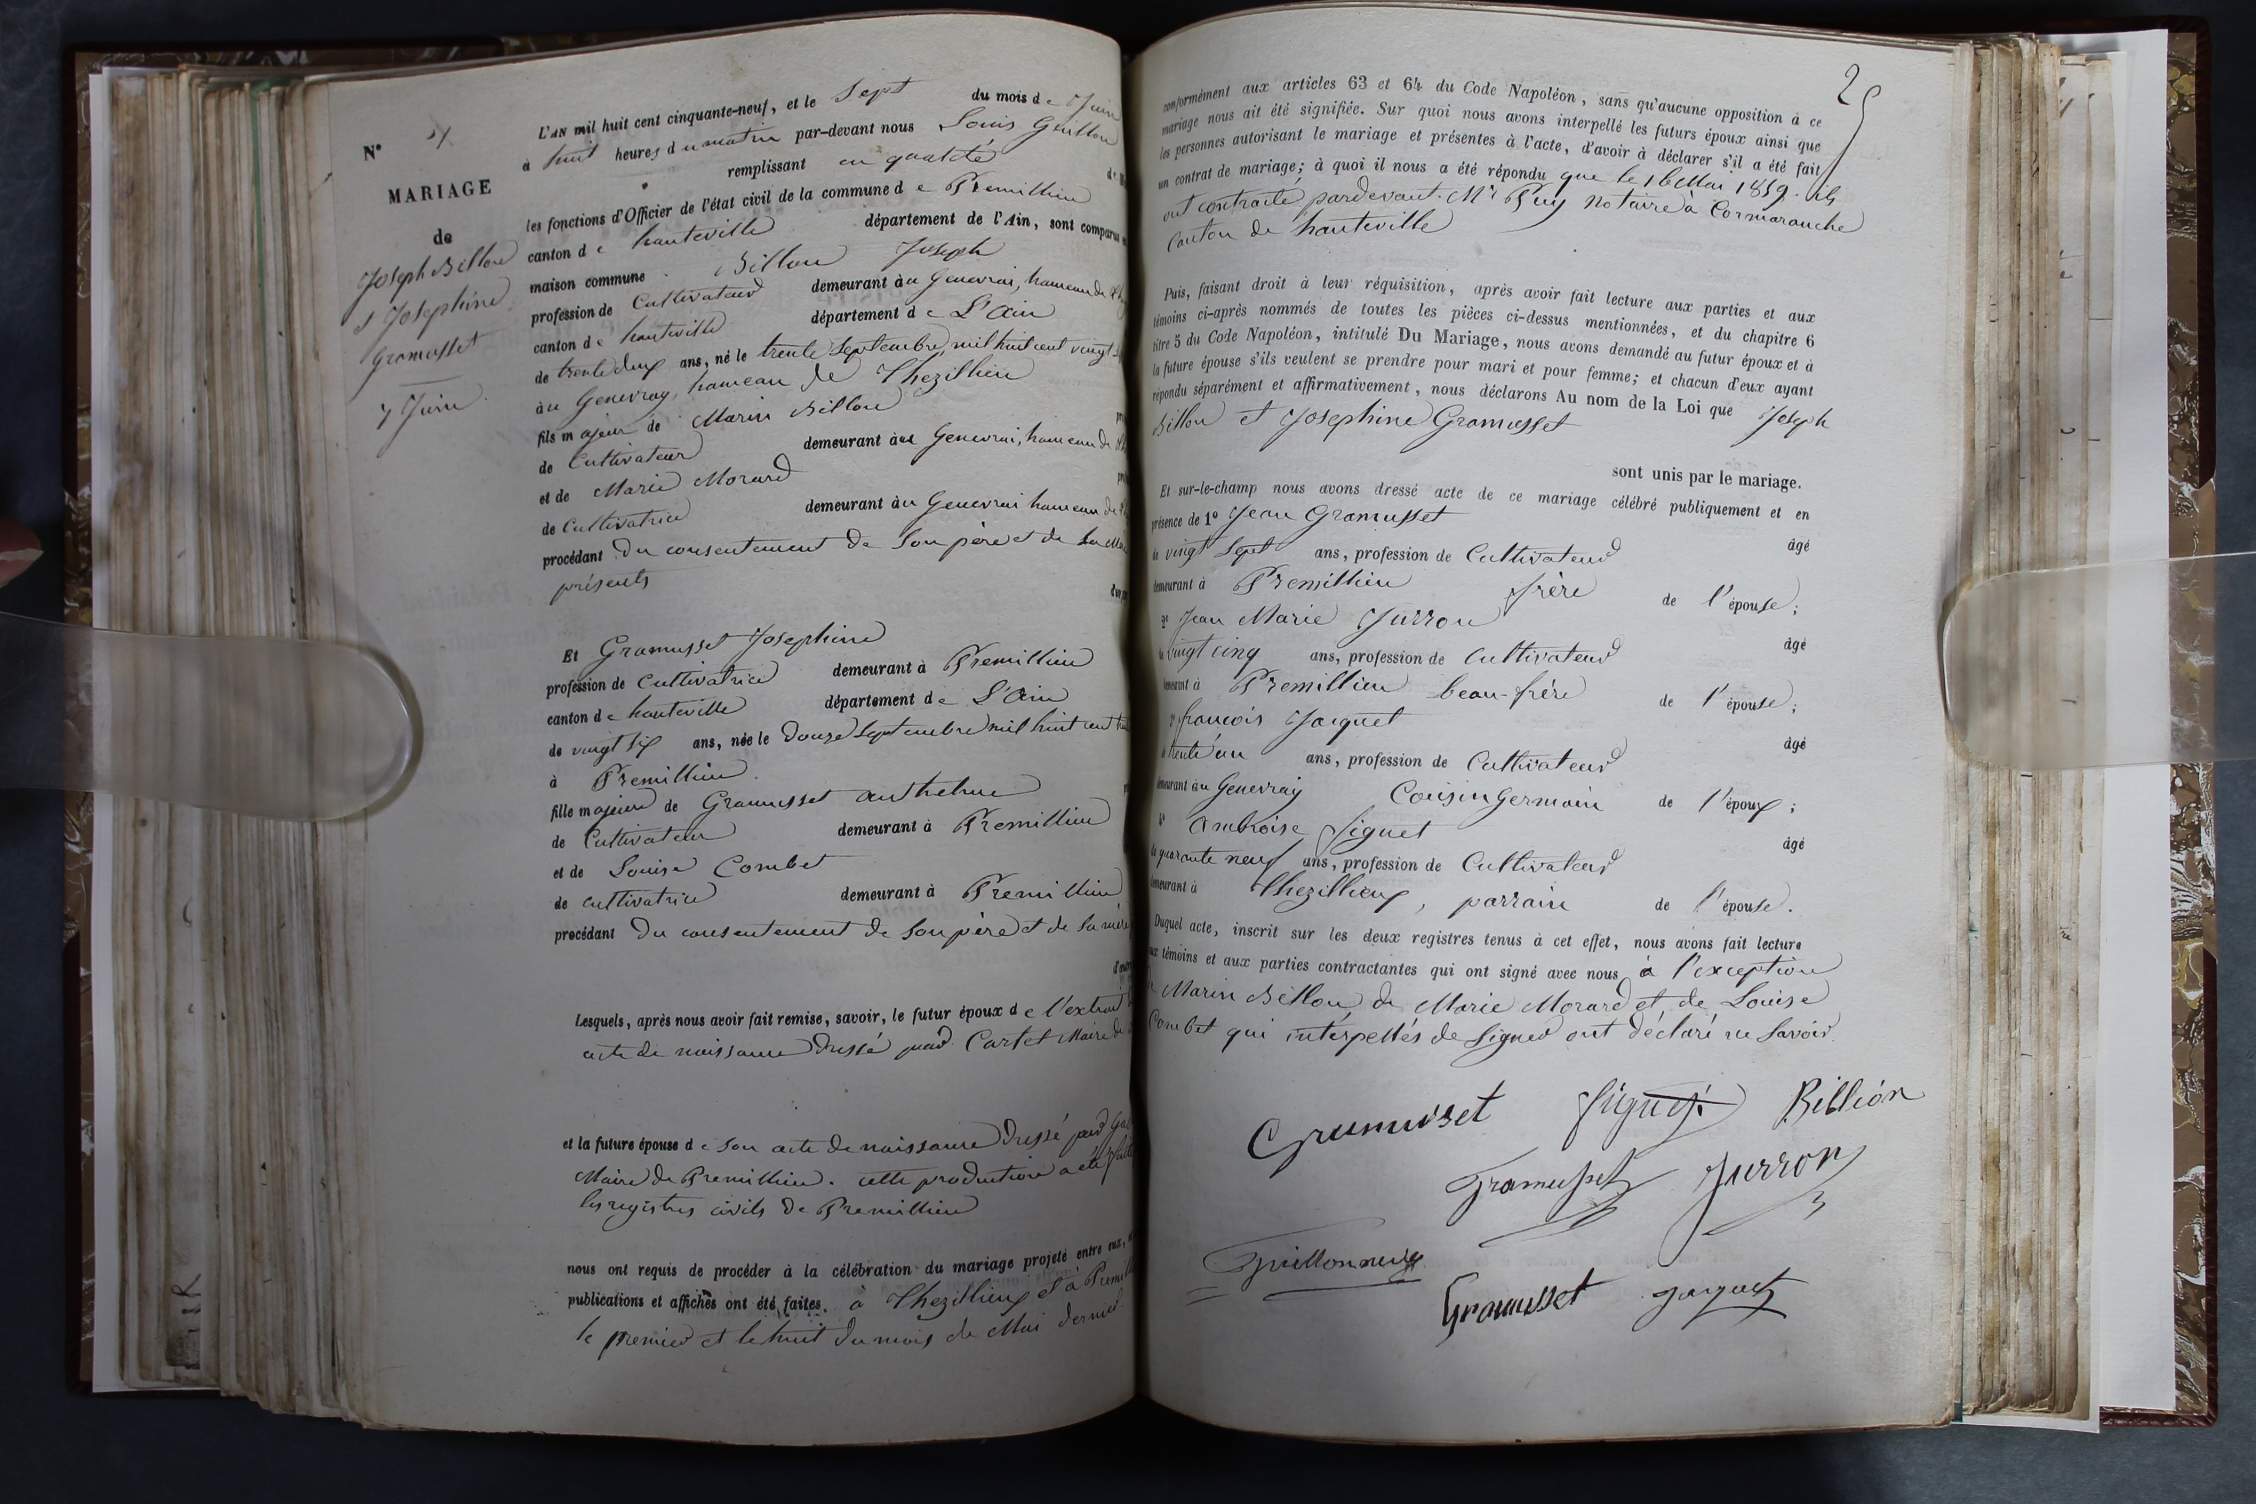 N° 4
MARIAGE
de
Joseph Billon
et Josephine
Gramusset
7 Juin
L'AN mil huit cent cinquante-neuf, et le Sept du mois de Juin
à huit heures du matin par-devant nous Louis Guillon
remplissant en qualité de
les fonctions d'Officier de l'état civil de la commune de Premillieu
canton de hauteville département de l'Ain, sont comparus
maison commune Billon Joseph
profession de Cultivateur demeurant au Genevrai, hameau de
canton de hauteville département de L'Ain
de trente deux ans, né le trente Septembre, mil huit cent vingt
au Genevray, hameau de Thezillieu
fils majeur de Marin Billon
de Cultivateur demeurant au Genevrai, hameau de
et de Marie Morard
de Cultivatrice demeurant au Genevrai hameau de
procédant Du consentement de Son père et de Sa
présents
Et Gramusset Josephine
profession de Cultivatrice demeurant à Premillieu
canton de hauteville département de L'Ain
de vingt six ans, née le Douze Septembre mil huit cent
à Premillieu
fille majeure de Gramusset Anthelme
de Cultivateur demeurant à Premillieu
et de Louise Combet
de cultivatrice demeurant à Premillieu
procédant Du consentement de Son père et de Sa mère
Lesquels, après nous avoir fait remise, savoir, le futur époux de l'extrait
acte de naissance Dressé par Cartet Maire de
et la future épouse de Son acte de naissance Dressé par
Maire de Premillieu. cette production a été
les registres civils de Premillieu
nous ont requis de procéder à la célébration du mariage projeté entre eux,
publications et affiches ont été faites. à Thezillieu et à
le premier et le huit du mois de Mai dernier
25
conformément aux articles 63 et 64 du Code Napoléon, sans qu'aucune opposition à ce
mariage nous ait été signifiée. Sur quoi nous avons interpellé les futurs époux ainsi que
les personnes autorisant le mariage et présentes à l'acte, d'avoir à déclarer s'il a été fait
un contrat de mariage; à quoi il nous a été répondu que le 16 Mai 1859. ils
ont contracté pardevant Mr Puy Notaire à Cormaranche
Canton de hauteville
Puis, faisant droit à leur réquisition, après avoir fait lecture aux parties et aux
témoins ci-après nommés de toutes les pièces ci-dessus mentionnées, et du chapitre 6
titre 5 du Code Napoléon, intitulé Du Mariage, nous avons demandé au futur époux et à
la future épouse s'ils veulent se prendre pour mari et pour femme; et chacun d'eux ayant
répondu séparément et affirmativement, nous déclarons Au nom de la Loi que Joseph
Billon et Josephine Gramusset
sont unis par le mariage.
Et sur-le-champ nous avons dressé acte de ce mariage célébré publiquement et en
présence de 1° Jean Gramusset âgé
de vingt Sept ans, profession de Cultivateur
demeurant à Premillieu frère de l'épouse;
2° Jean Marie Jurron âgé
de vingt cinq ans, profession de Cultivateur
demeurant à Premillieu beau-frère de l'épouse;
3° françois Jacquet âgé
de trente un ans, profession de Cultivateur
demeurant au Genevray Cousin Germain de l'époux;
4° Ambroise Siguet âgé
de quarante neuf ans, profession de Cultivateur
demeurant à Thezillieux, parrain de l'épouse.
Duquel acte, inscrit sur les deux registres tenus à cet effet, nous avons fait lecture
aux témoins et aux parties contractantes qui ont signé avec nous à l'exception
de Marin Billon, de Marie Morard et de Louise
Combet qui interpellés de Signer ont déclaré ne Savoir.
Gramusset Siguet Billion
Gramusset Jurron
Gramusset Jacquet